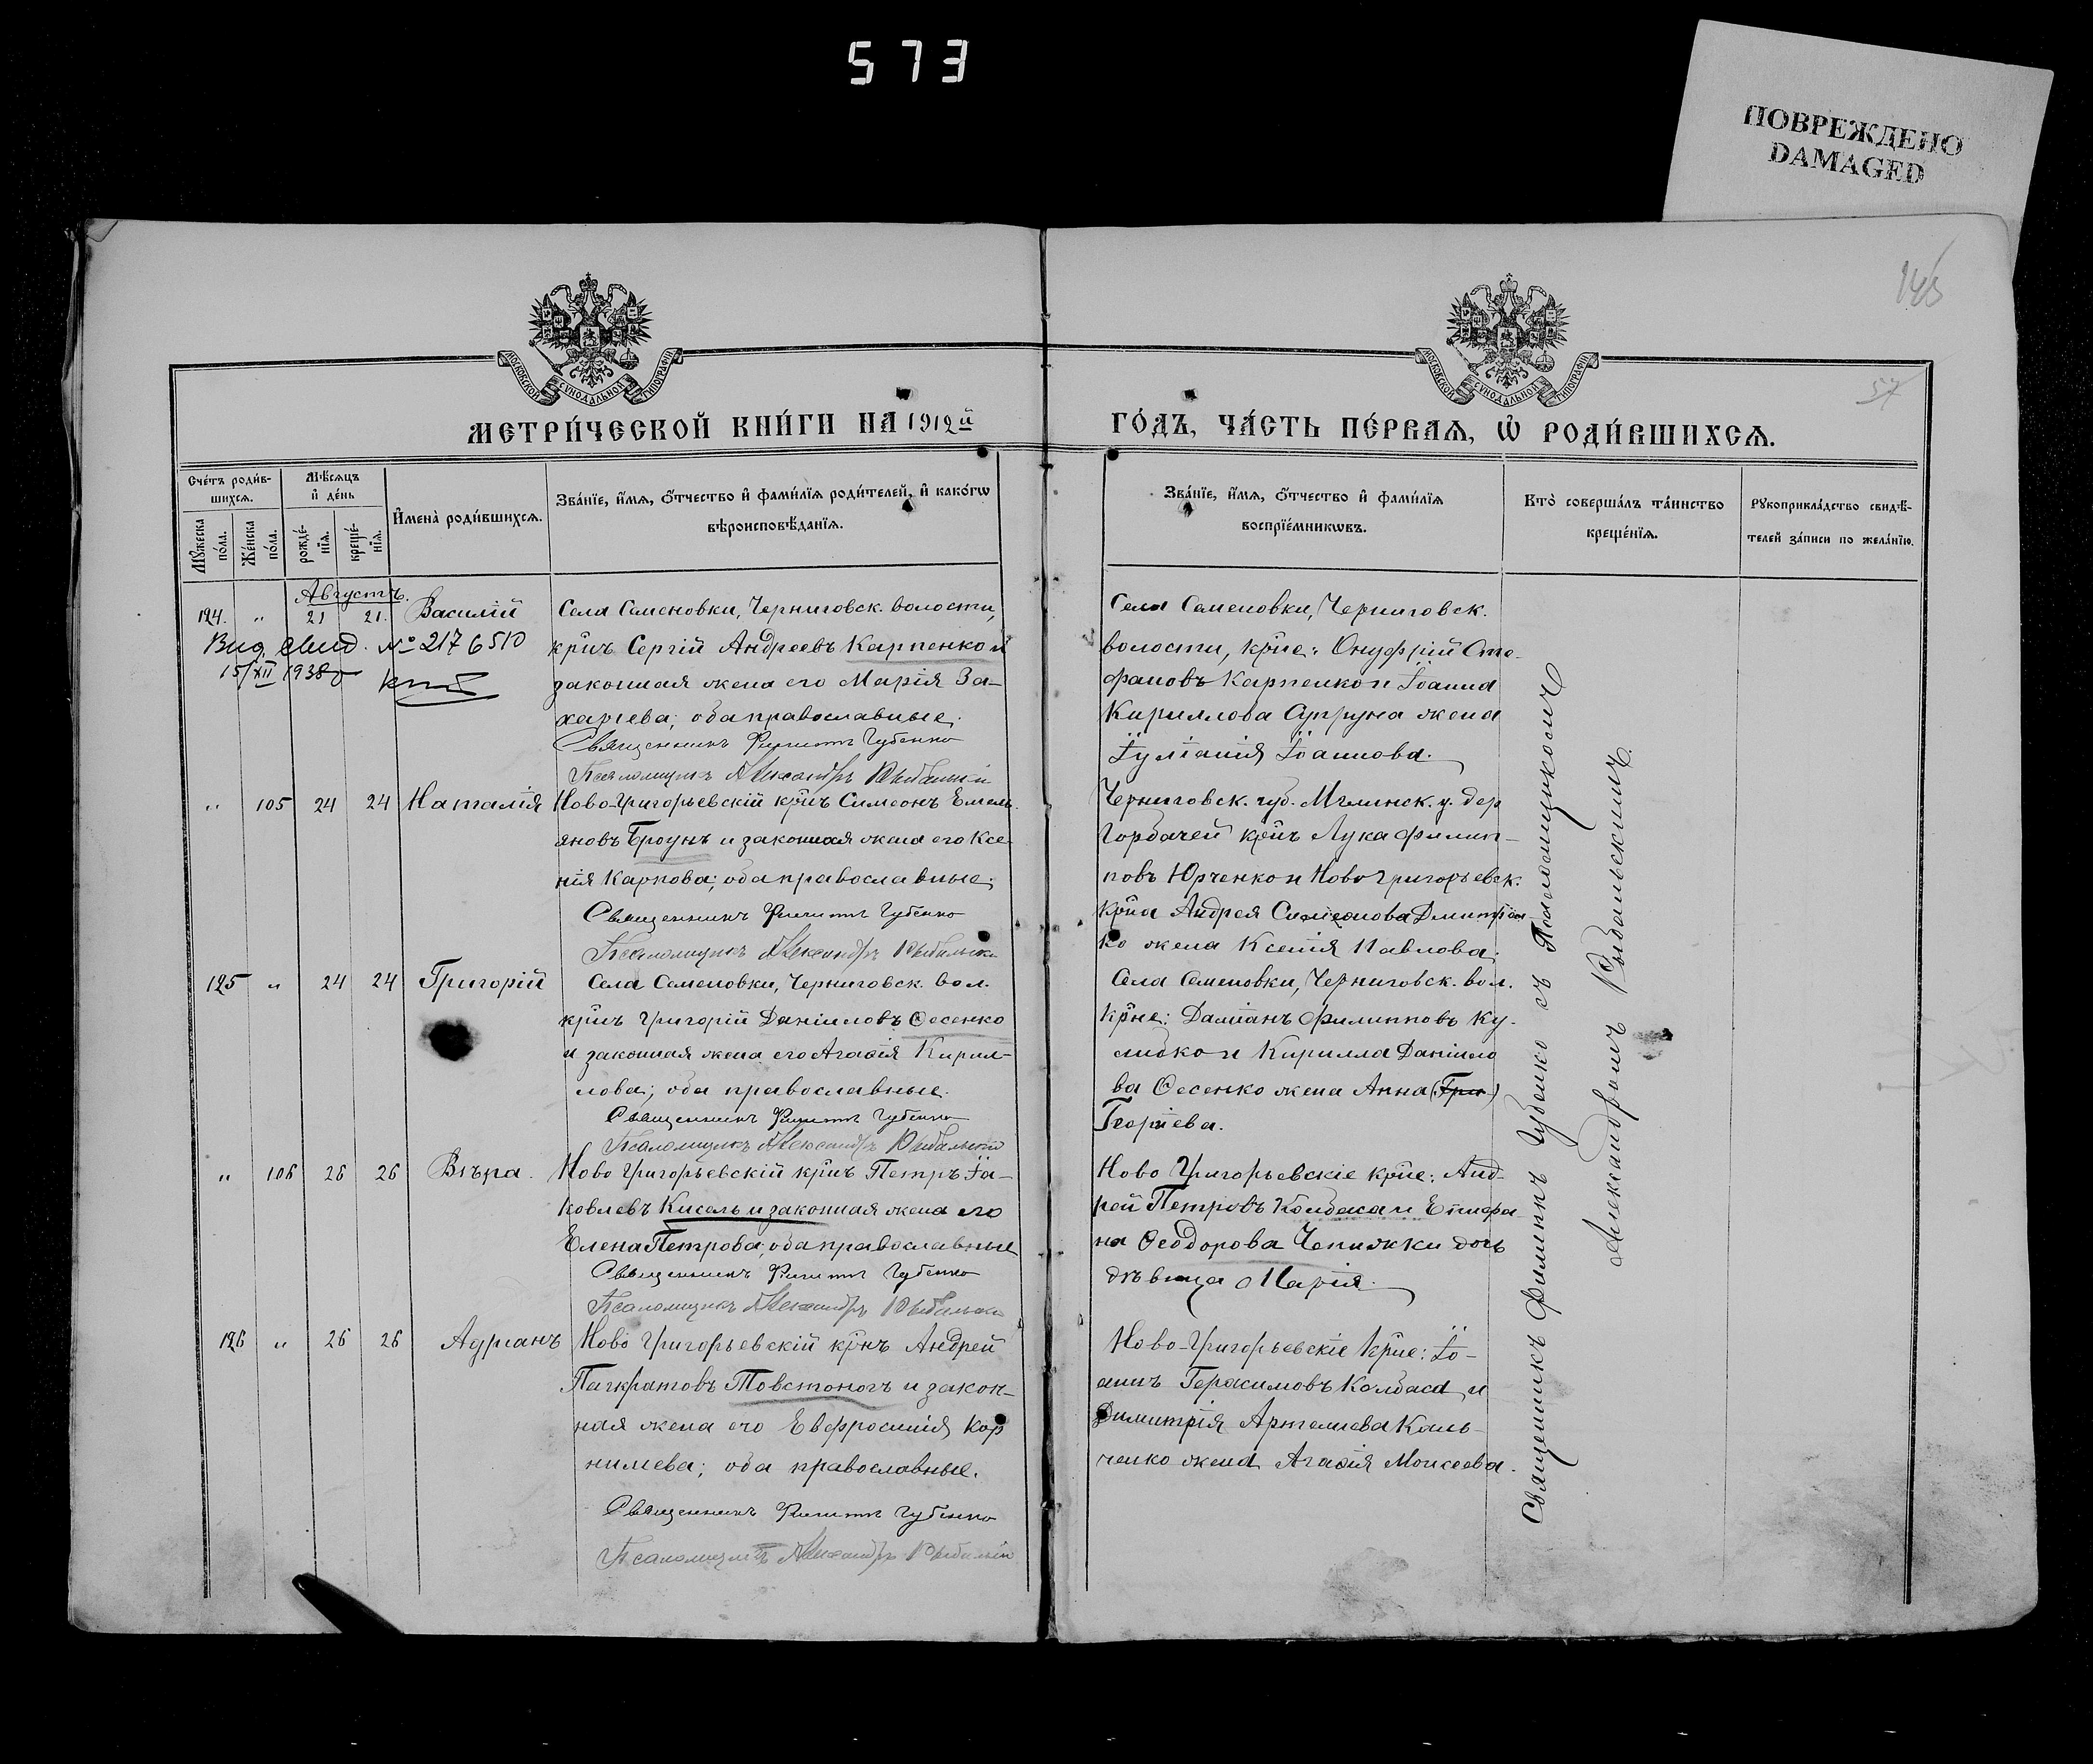 573
ПОВРЕЖДЕНО
DAMAGED
57
МОСКОВСКОЙ СѴНОДАЛЬНОЙ ТИПОГРАФІИ
МОСКОВСКОЙ СѴНОДАЛЬНОЙ ТИПОГРАФІИ
МЕТРИ́ЧЕСКОЙ КНИ́ГИ НА 1912й
ГО́ДЪ, ЧА́СТЬ ПЕ́РВАЯ, Ѡ҆ РОДИ́ВШИХСЯ.
Сче́тъ роди́в-
шихся.
Мѣ́сяцъ
и҆ де́нь
Мꙋ́жеска
по́ла.
Же́нска
по́ла.
рожде́-
нїя.
креще́-
нїя.
И҆мена̀ роди́вшихся.
Зва́нїе, и҆́мя, ѻ҆́тчество и҆ фами́лїя роди́телей, и҆ како́гѡ
вѣроисповѣ́данїя.
Зва́нїе, и҆́мя, ѻ҆́тчество и҆ фами́лїя
воспрїе́мникѡвъ.
Кто̀ соверша́лъ та́инство
креще́нїя.
Рꙋкоприкла́дство свидѣ́-
телей за́писи по жела́нїю.
Августъ.
124. " 21 21. Василій
Вид. свид. № 2176510
15/XII 1938
Села Семеновки, Черниговск. волости,
крнъ Сергій Андреевъ Карпенко и
законная жена его Марія За-
харіева; оба православные.
Священникъ Филиппъ Губенко
Псаломщикъ Александръ Рыбальскій
Села Семеновки, Черниговск.
волости, крне: Онуфрій Сте-
фановъ Карпенко и Іоанна
Кириллова Супруна жена
Іуліанія Іоаннова.
" 105 24 24 Наталія
Ново-Григорьевскій крнъ Симеонъ Емель-
яновъ Броунъ и законная жена его Ксе-
нія Карпова; оба православные.
Священникъ Филиппъ Губенко
Псаломщикъ Александръ Рыбальскій
Черниговск. губ. Мглинск. у. дер
Горбачей крнъ Лука Филип-
повъ Юрченко и Ново Григорьевск.
крна Андрея Симеонова Дмитрен-
ко жена Ксенія Павлова.
125 " 24 24 Григорій
Села Семеновки, Черниговск. вол.
крнъ Григорій Даніиловъ Ѳесенко
и законная жена его Агаѳія Кирил-
лова; оба православные.
Священникъ Филиппъ Губенко
Псаломщикъ Александръ Рыбальскій
Села Семеновки, Черниговск. вол.
Крне: Даміанъ Филипповъ Ку-
либко и Кирилла Даніило
ва Ѳесенко жена Анна (Гри)
Георгіева.
" 106 26 26 Вѣра.
Ново Григорьевскій крнъ Петръ Іа-
ковлевъ Кисель и законная жена его
Елена Петрова, оба православные
Священникъ Филиппъ Губенко
Псаломщикъ Александръ Рыбальскій
Ново Григорьевскіе крне: Анд-
рей Петровъ Колбаса и Епифа-
на Ѳеодорова Чепижки дочь
дѣвица Марія.
126 " 26 26 Адріанъ
Ново Григорьевскій крнъ Андрей
Панкратовъ Товстоногъ и закон-
ная жена его Евфросинія Кор
ниліева; оба православные.
Священникъ Филиппъ Губенко
Псаломщикъ Александръ Рыбальскій
Ново-Григорьевскіе Крне: Іо-
аннъ Герасимовъ Колбаса и
Димитрія Артеміева Каль-
ченко жена Агаѳія Моисеева.
Священникъ Филиппъ Губенко съ Псаломщикомъ
Александромъ Рыбальскимъ.